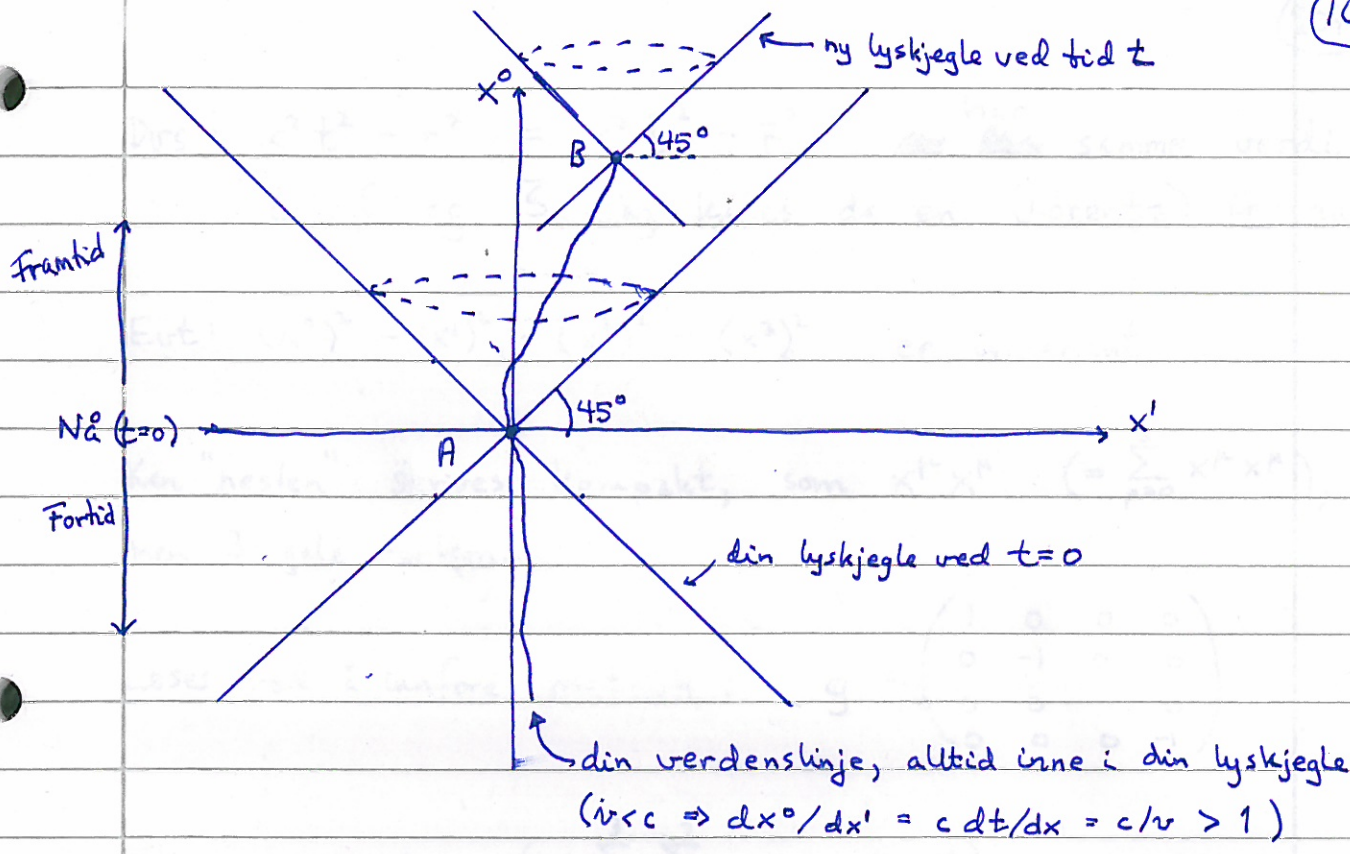 (10
ny lyskjegle ved tid t
x⁰
B
45°
Framtid
45°
Nå (t=0)
x¹
A
Fortid
din lyskjegle ved t=0
din verdenslinje, alltid inne i din lyskjegle
(v<c ⇒ dx⁰/dx¹ = c dt/dx = c/v > 1)